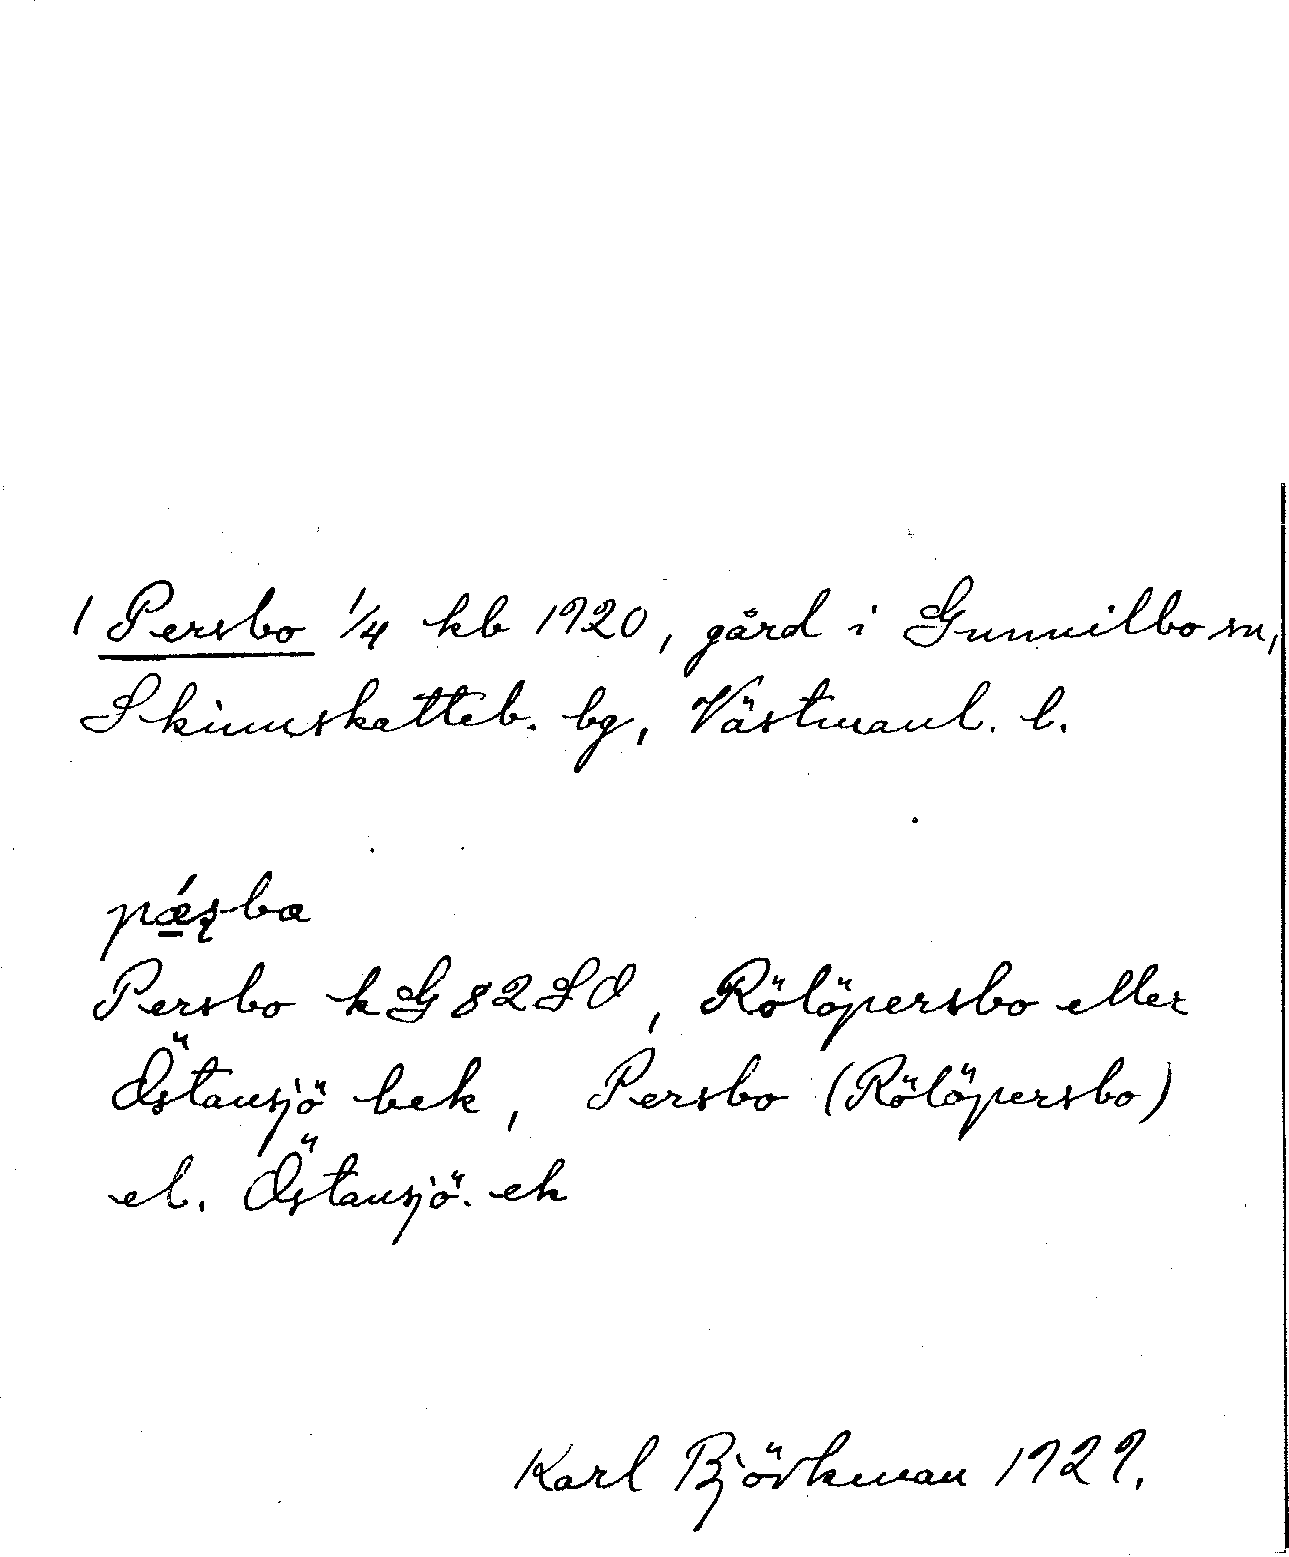 1 Persbo 1/4 kb 1920, gård i Gunnilbo sn,
Skinnskatteb. bg, Västmanl. l.
pǽʂba
Persbo kG82SO, Rölöpersbo eller
Östansjö bek, Persbo (Rölöpersbo)
el. Östansjö. ek
Karl Björkman 1929.